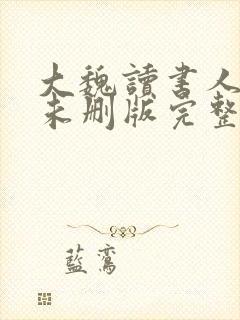 大魏讀書人
未刪版完整
藍鸞